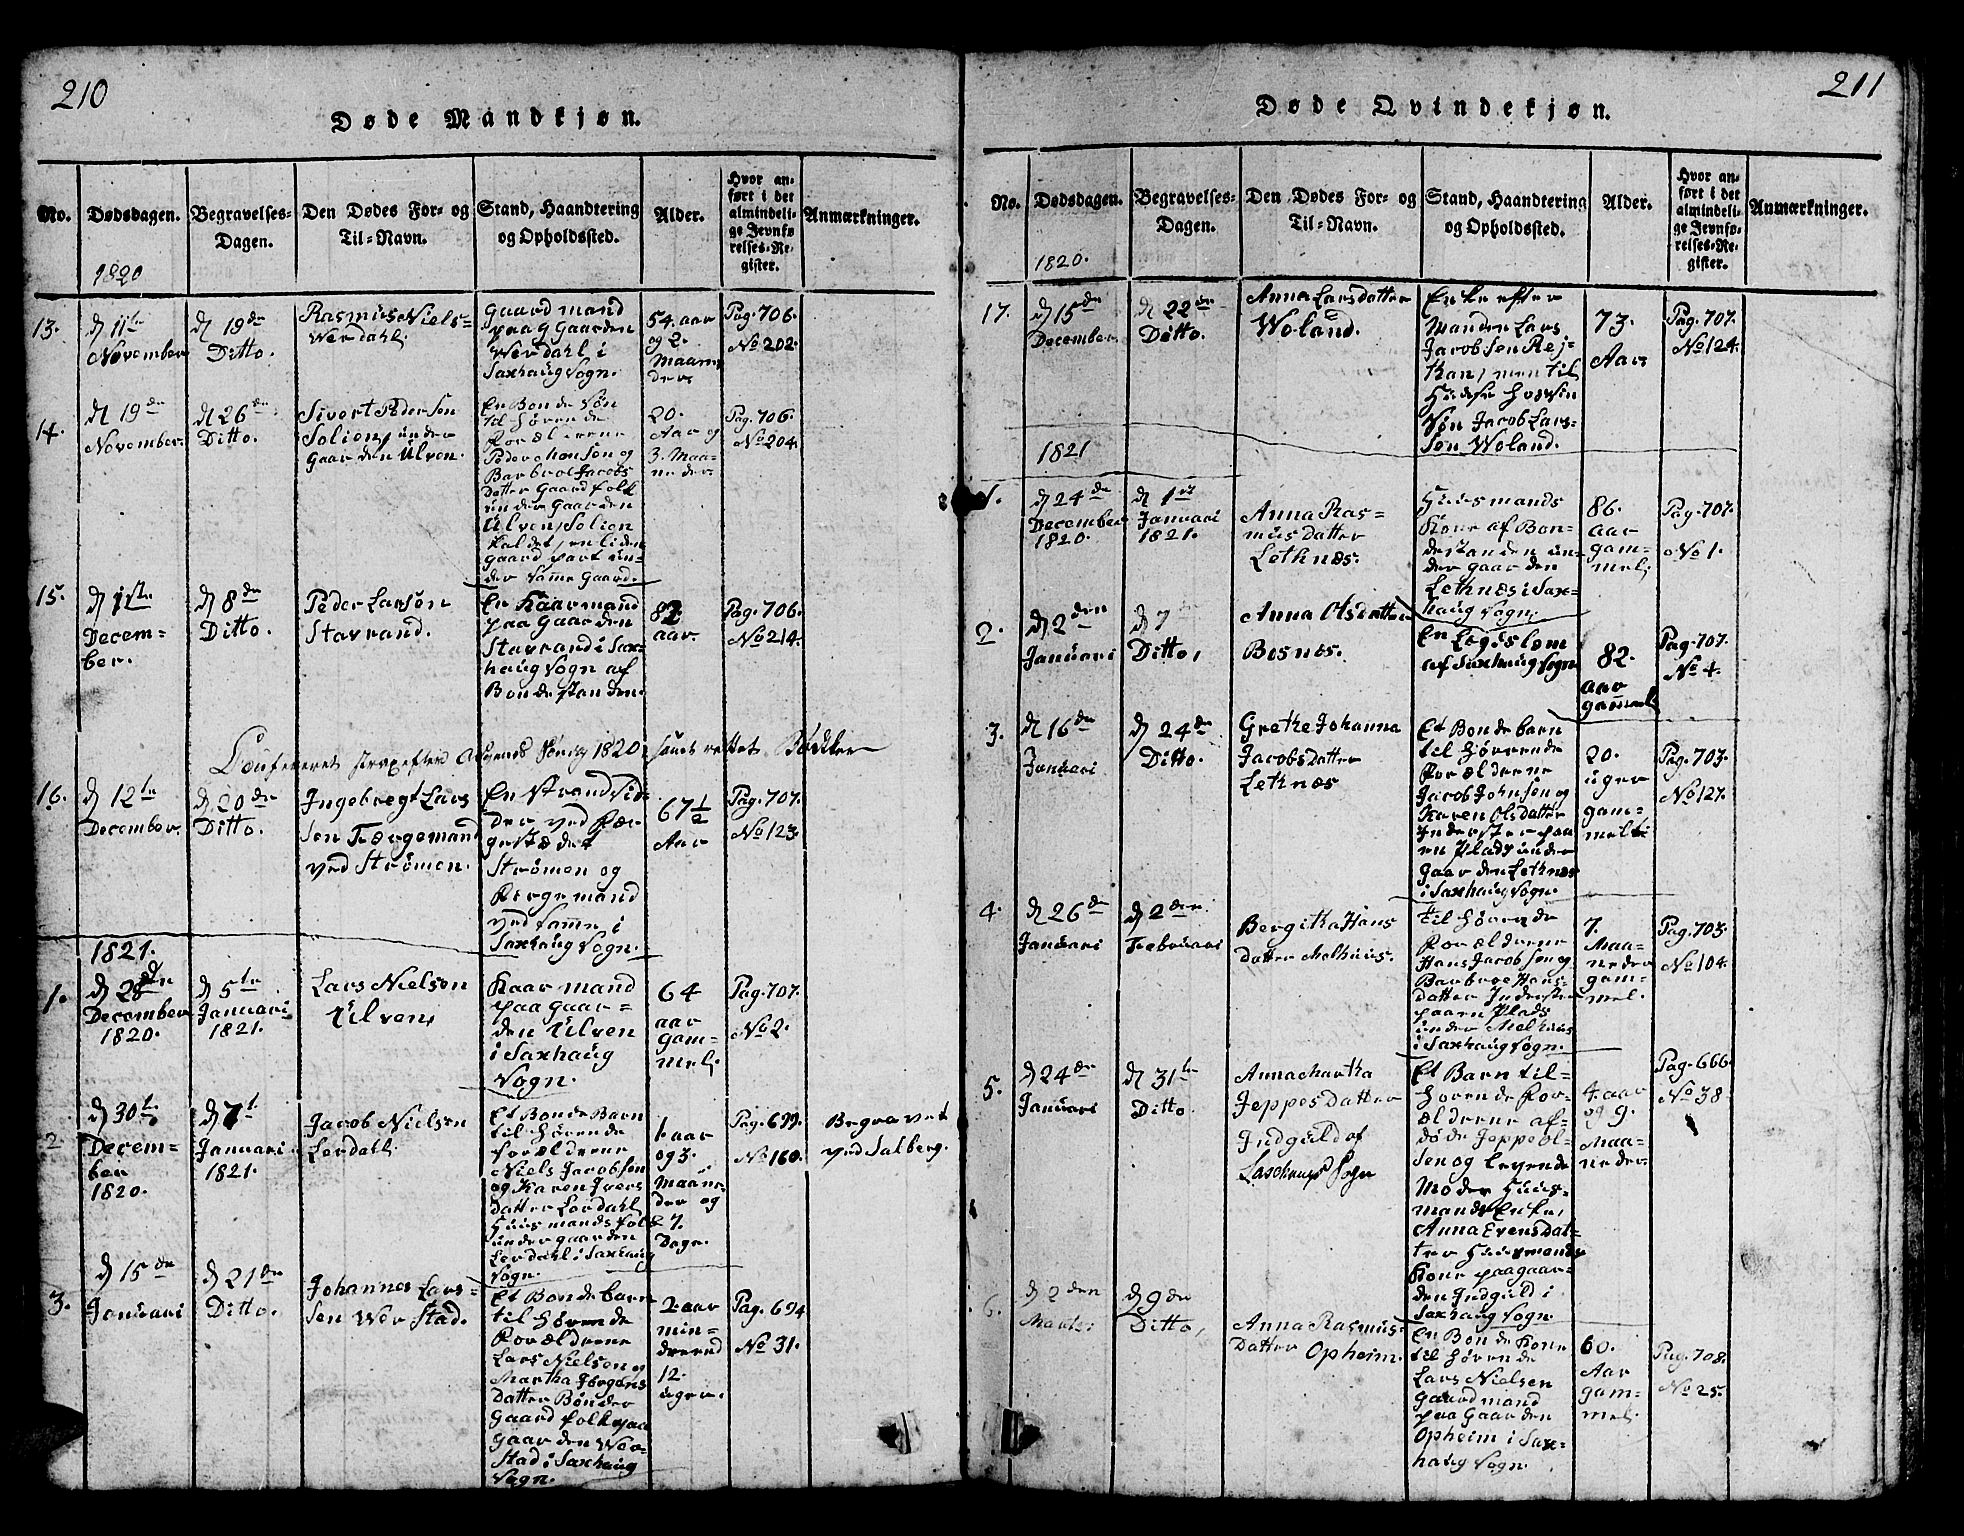 210
Døde Mandkjøn.
No.
Dødsdagen.
1820
Begravelses-
Dagen.
Den Dødes For- og
Til-Navn.
Stand, Haandtering
og Opholdssted.
Alder.
Hvor an-
ført i det
almindeli-
ge Jevnfø-
relses-Re-
gister.
Anmærkninger.
13.
d 11te
November
d 19de
Ditto.
Rasmus Niels-
Werdahl.
Gaardmand
paa Gaarden
Werdahl i
Saxhaug Sogn.
54. aar
og 2.
Maane
der
Pag. 706.
No 202.
14.
d 19de
November.
d 26de
Ditto.
Sivert Pedersen
Solien, under
Gaarden Ulven.
En Bonde Søn
tilhørende
Forældrene
Peder Hansen og
Barbroe Jacobs
Datter Gaardfolk
under Gaarden
Ulven, Solien
kaldet, en liden
gaard part un-
der samme Gaard.
20.
Aar og
3. Maa-
neder
Pag. 706.
No 204.
15.
d 1ste
Decem-
ber.
d 8de
Ditto.
Peder Larsen
Stavrand.
En Kaarmand
paa Gaarden
Stavrand i Sax-
haug Sogn af
Bondestanden.
82
aar.
Pag. 706.
No 214.
16.
d 12te
December.
d 20de
Ditto.
Ingebregt Lars
Sen Færgemand
ved Strømen.
En Strand Sid-
der ved Fær-
gestædet
Strømen og
Færgemand
ved samme i
Saxhaug Sogn.
67 1/2
Aar
Pag. 707.
No 123.
1821.
1.
d 28de
December
1820.
d 5te
Januari
1821.
Lars Nielsen
Ulven,
Kaarmand
paa Gaar-
den Ulven
i Saxhaug
Sogn.
64
aar
gam-
mel.
Pag. 707.
No 2.
2.
d 30te
Decem-
ber
1820.
d 7t
Januari
1821.
Jacob Nielsen
Lerdahl.
Et Bonde Barn
tilhørende
forældrene
Niels Jacobsen
og Karen Ivers
datter Lerdahl
Huusmandsfolk
under gaarden
Lerdahl i Saxhaug
Sogn.
1. aar
og 3.
Maane-
der og
7.
Dage.
Pag. 699.
No 160.
Begravet
ved Salberg.
3.
d 15de
Januari
d 21de
Ditto.
Johannes Lars-
sen Werstad.
Et Bondebarn
tilhørende
Forældrene
Lars Nielsen og
Martha Jørgens
Datter Bønder
Gaardfolk paa
Gaarden Wer-
stad i Saxhaug
Sogn.
2. aar
min-
dreend
12.
uger.
Pag. 694
No 31.
211
Døde Qvindekjøn.
No.
Dødsdagen.
1820.
Begravelses-
Dagen.
Den Dødes For- og
Til-Navn.
Stand, Haandtering
og Opholdssted.
Alder.
Hvor an-
ført i det
almindeli-
ge Jevnfø-
relses-Re-
gister.
Anmærkninger.
17.
d 15de
December
d 22de
Ditto.
Anna Larsdatter
Woland.
Enke efter
Manden Lars
Jacobsen Rej-
kan, men til
Huuse hos sin
Søn Jacob Lars-
sen Woland.
73.
Aar
Pag. 707.
No 124.
1821
1.
d 24de
December
1820.
d 1st
Januari
1821.
Anna Ras-
musdatter
Letknæs.
Huusmands
Kone af Bon-
destanden un-
der gaarden
Letknæs i Sax-
haug Sogn.
86.
aar
gam-
mel,
Pag. 707.
No 1.
2.
d 2den
Januari
d 7
Ditto,
Anna Olsdatter
Bosnes.
En Legdslem
af Saxhaug Sogn
82.
aar
gammel
Pag. 707.
No 4.
3.
d 16de
Januari
d 24de
Ditto.
Grethe Johanna
Jacobsdatter
Letknæs
Et Bondebarn
tilhørrende
Forældrene
Jacob Johnsen og
Karen Olsdatter
Inderster paa
en Plads under
gaarden Letknæs
i Saxhaug Sogn.
20.
uger
gam-
mel
Pag. 703.
No 127.
4.
d 26de
Januari
d 2den
Februari
Bergitha Hans
datter Melhuus.
tilhørende
Forældrene
Hans Jacobsen og
Barbroe Hans-
datter Inderster
paa en Plads
under Melhuus
i Saxhaug Sogn.
7.
Maa-
neder
gam-
mel.
Pag. 703.
No 104.
5.
d 24de
Januari
d 31te
Ditto.
Anna Martha
Jeppesdatter
Indguld af
Saxhaugs Sogn
Et Barn til-
hørende For-
ældrene af-
døde Jeppe Ol-
sen og levende
Moder Huus-
mands Enke,
Anna Evensdat-
ter Huusmands
Kone paa gaar-
den Indguld i
Saxhaug Sogn.
4. aar
og 9.
Maa-
neder.
Pag. 666.
No 38.
6.
d 2den
Martz.
d 9de
Ditto,
Anna Rasmus-
Datter Opheim.
En Bonde Kone
tilhørende
Lars Nielsen
gaardmand
paa Gaarden
Opheim i Sax-
haug Sogn.
60.
Aar
gam-
mel.
Pag. 708.
No 25.